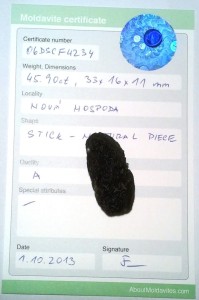 Moldavite certificate
Certificate number
06DSCF4234
Weight, Dimensions
45.90ct, 33x16x11 mm
Locality
NOVÁ HOSPODA
Shape
STICK - NATURAL PIECE
Quality
A
Special attributes
—
Date
Signature
1.10.2013
AboutMoldavites.com